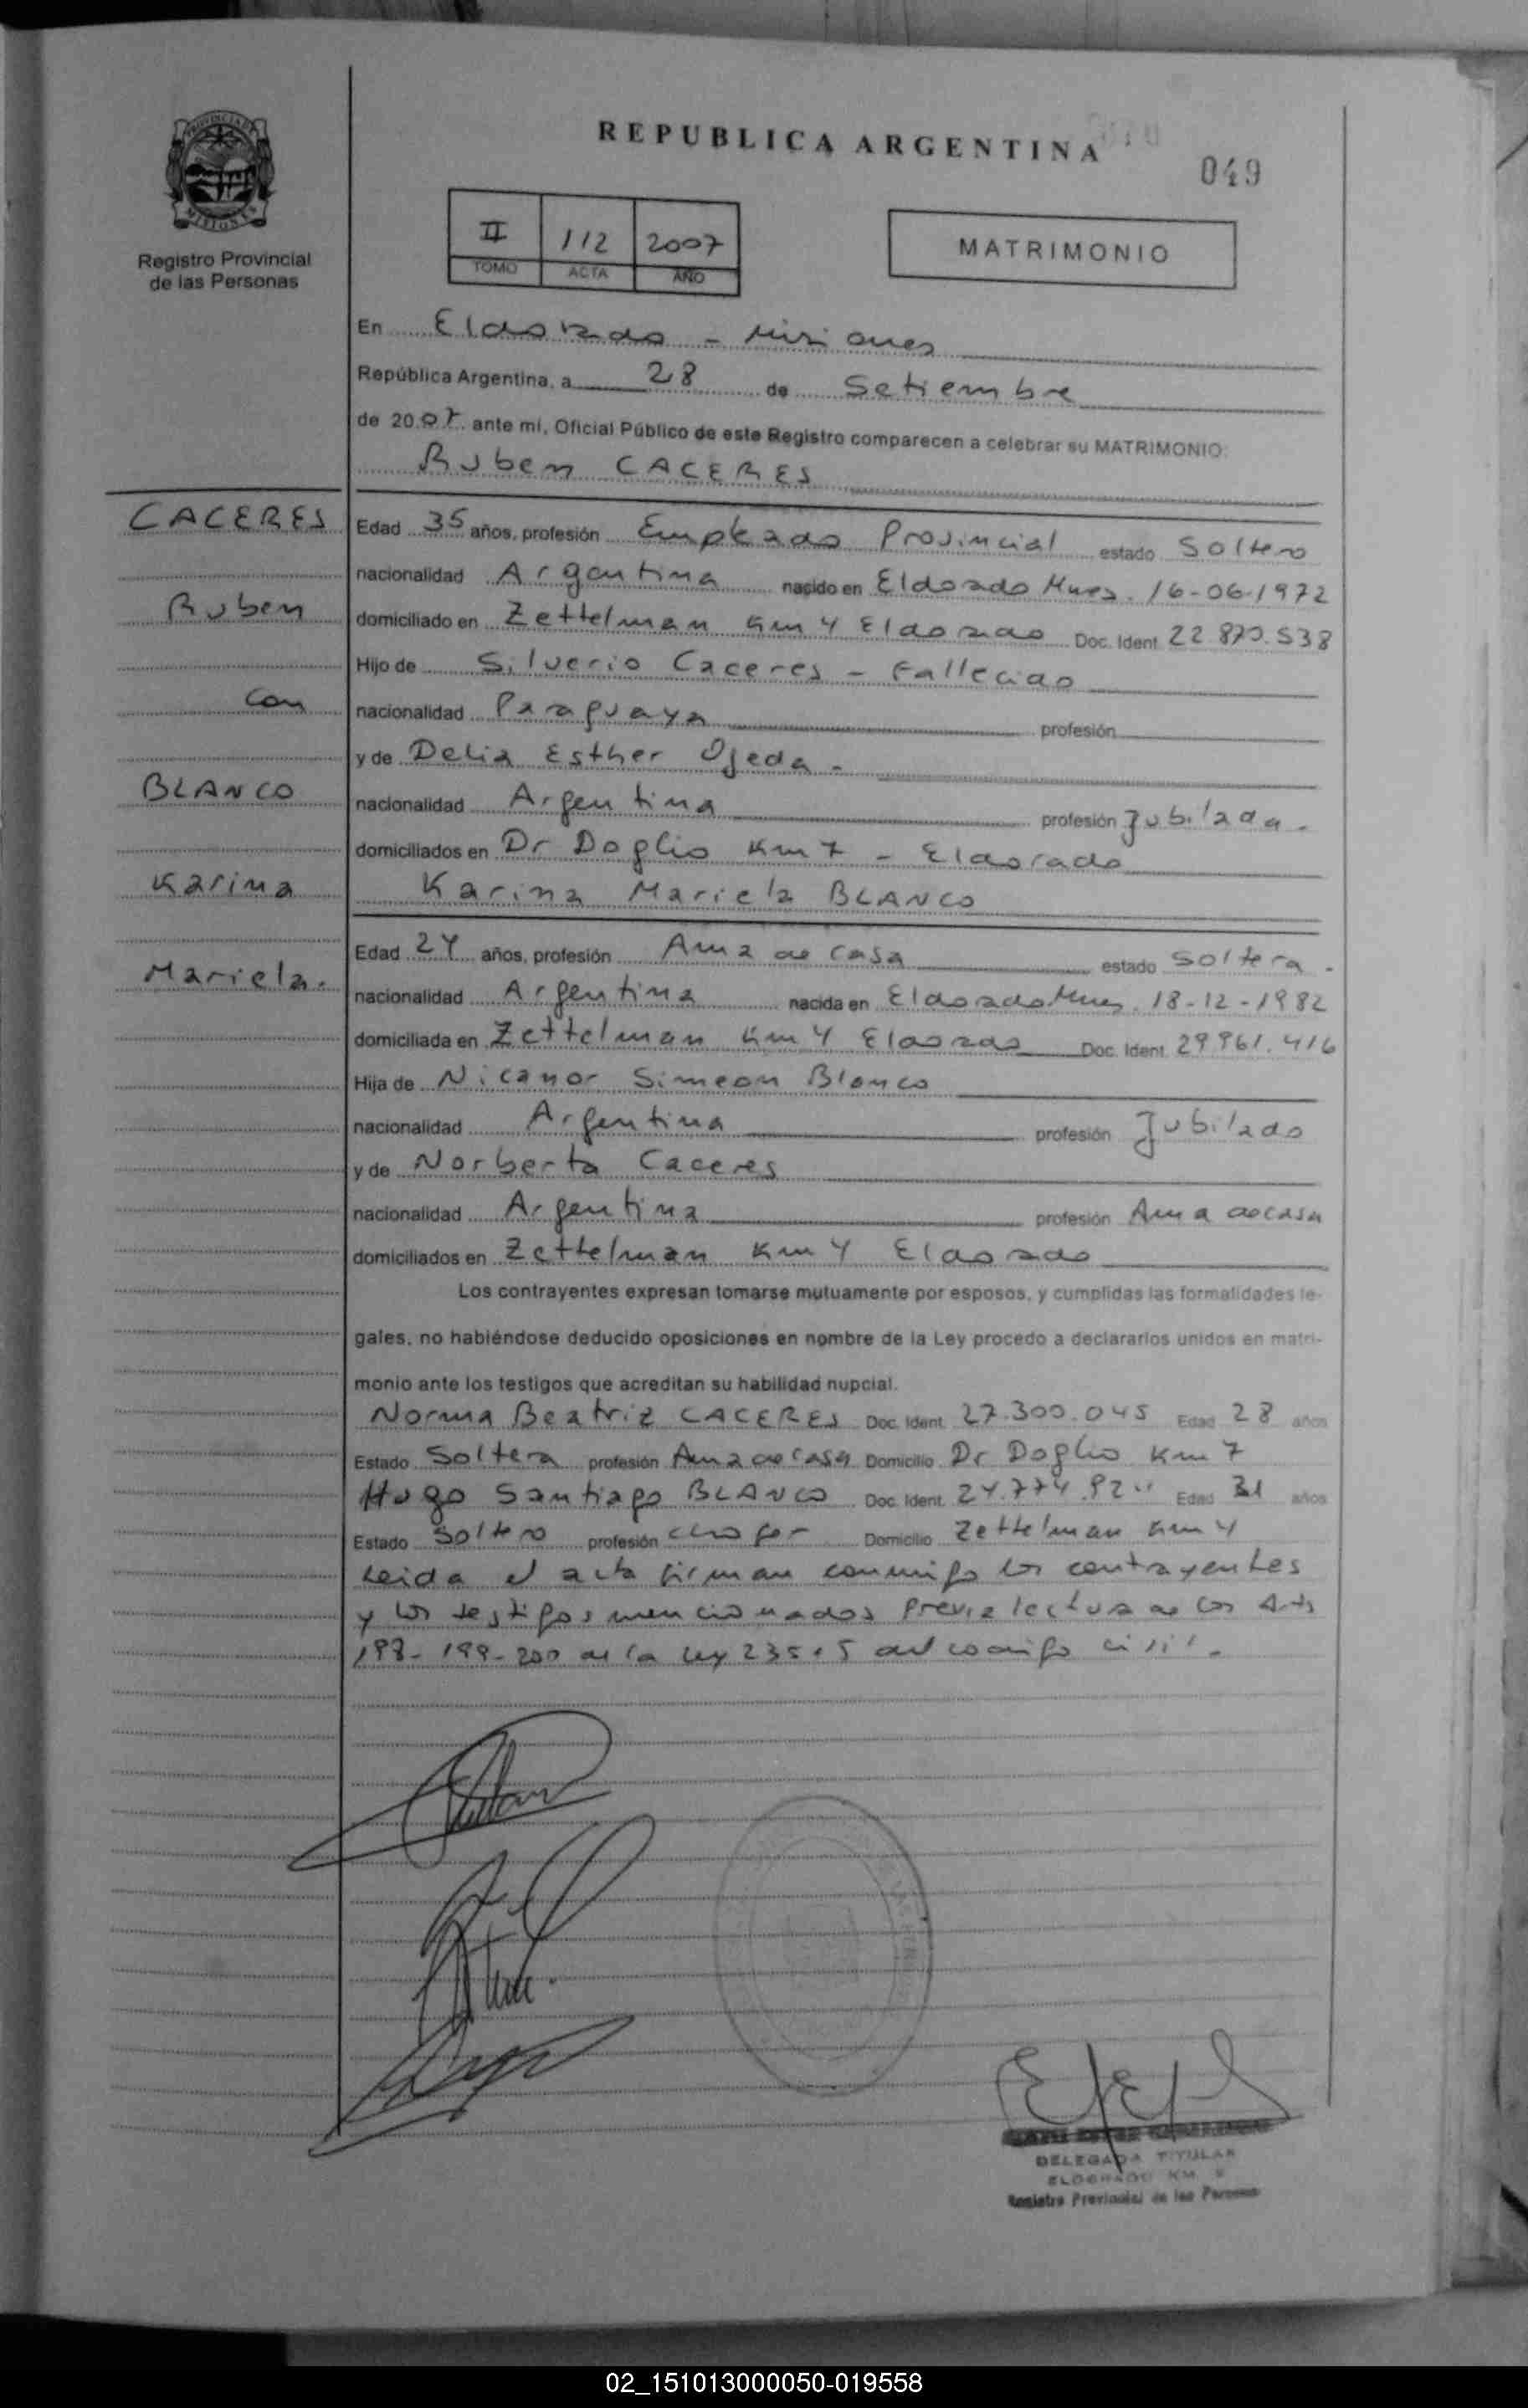 PROVINCIA DE
MISIONES
Registro Provincial
de las Personas
REPUBLICA ARGENTINA
049
II 112 2007
TOMO ACTA AÑO
MATRIMONIO
En Eldorado - Misiones
República Argentina, a 28 de Setiembre
de 2007 ante mí, Oficial Público de este Registro comparecen a celebrar su MATRIMONIO:
Ruben CACERES
CACERES
Ruben
con
BLANCO
Karina
Mariela.
Edad 35 años, profesión Empleado Provincial estado Soltero
nacionalidad Argentina nacido en Eldorado Mnes. 16-06-1972
domiciliado en Zettelman Km 4 Eldorado Doc. Ident. 22.870.538
Hijo de Silverio Caceres - Fallecido
nacionalidad Paraguaya profesión
y de Delia Esther Ojeda -
nacionalidad Argentina profesión Jubilada.
domiciliados en Dr Doglio Km 7 - Eldorado
Karina Mariela BLANCO
Edad 24 años, profesión Ama de casa estado Soltera.
nacionalidad Argentina nacida en Eldorado Mnes. 18-12-1982
domiciliada en Zettelman Km 4 Eldorado Doc. Ident. 29.961.416
Hija de Nicanor Simeon Blanco
nacionalidad Argentina profesión Jubilado
y de Norberta Caceres
nacionalidad Argentina profesión Ama de casa
domiciliados en Zettelman Km 4 Eldorado
Los contrayentes expresan tomarse mutuamente por esposos, y cumplidas las formalidades le-
gales, no habiéndose deducido oposiciones en nombre de la Ley procedo a declararlos unidos en matri-
monio ante los testigos que acreditan su habilidad nupcial.
Norma Beatriz CACERES Doc. Ident. 27.300.045 Edad 28 años
Estado Soltera profesión Ama de casa Domicilio Dr Doglio Km 7
Hugo Santiago BLANCO Doc. Ident. Edad 31 años
Estado Soltero profesión chofer Domicilio Zettelman Km 4
Leida el acta firman conmigo los contrayentes
y los testigos mencionados previa lectura de los Arts
198-199-200 de la Ley 23515 del codigo civil.
DELEGADA TITULAR
ELDORADO KM
Registro Provincial de las Personas
02_151013000050-019558